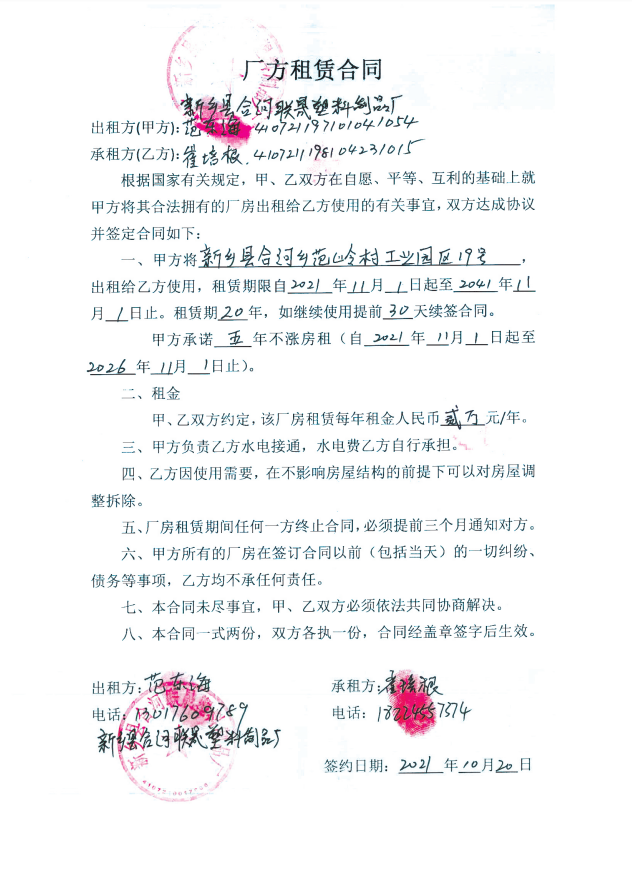 厂方租赁合同
新乡县合河联晟塑料制品厂
出租方(甲方):范东海 410721197101041054
承租方(乙方):崔培根. 410721198104231015
根据国家有关规定，甲、乙双方在自愿、平等、互利的基础上就
甲方将其合法拥有的厂房出租给乙方使用的有关事宜，双方达成协议
并签定合同如下:
一、甲方将新乡县合河乡范岭村工业园区19号，
出租给乙方使用，租赁期限自2021年11月1日起至2041年11
月1日止。租赁期20年，如继续使用提前30天续签合同。
甲方承诺五年不涨房租（自2021年11月1日起至
2026年11月1日止）。
二、租金
甲、乙双方约定，该厂房租赁每年租金人民币贰万元/年。
三、甲方负责乙方水电接通，水电费乙方自行承担。
四、乙方因使用需要，在不影响房屋结构的前提下可以对房屋调
整拆除。
五、厂房租赁期间任何一方终止合同，必须提前三个月通知对方。
六、甲方所有的厂房在签订合同以前（包括当天）的一切纠纷、
债务等事项，乙方均不承任何责任。
七、本合同未尽事宜，甲、乙双方必须依法共同协商解决。
八、本合同一式两份，双方各执一份，合同经盖章签字后生效。
出租方:范东海
承租方:崔培根
电话:13017609789
电话: 18224557574
新乡县合河联晟塑料制品厂
签约日期: 2021年10月20日